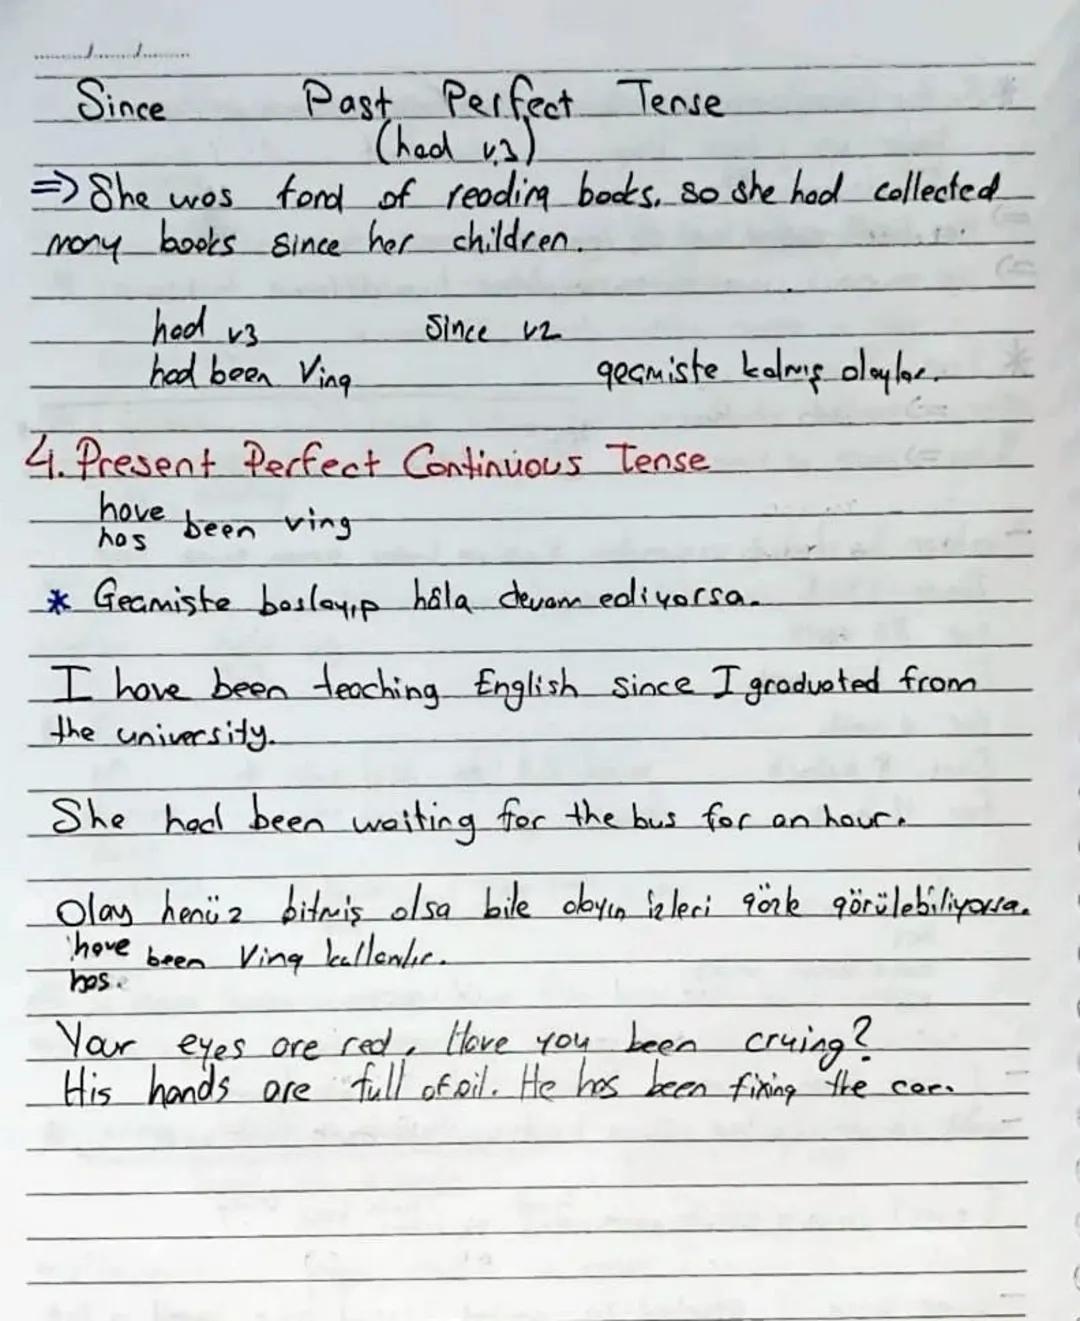 Since Past Perfect Tense
(had v3)
=> She was fond of reading books, so she had collected
many books since her children.
had v3 Since v2
had been Ving geçmişte kalmış olaylar.
4. Present Perfect Continuous Tense
have
has been ving
* Geçmişte başlayıp hâla devam ediyorsa.
I have been teaching English since I graduated from
the university.
She had been waiting for the bus for an hour.
Olay henüz bitmiş olsa bile olayın izleri gözle görülebiliyorsa.
have
has been Ving kullanılır.
Your eyes are red, Have you been crying?
His hands are full of oil. He has been fixing the car.